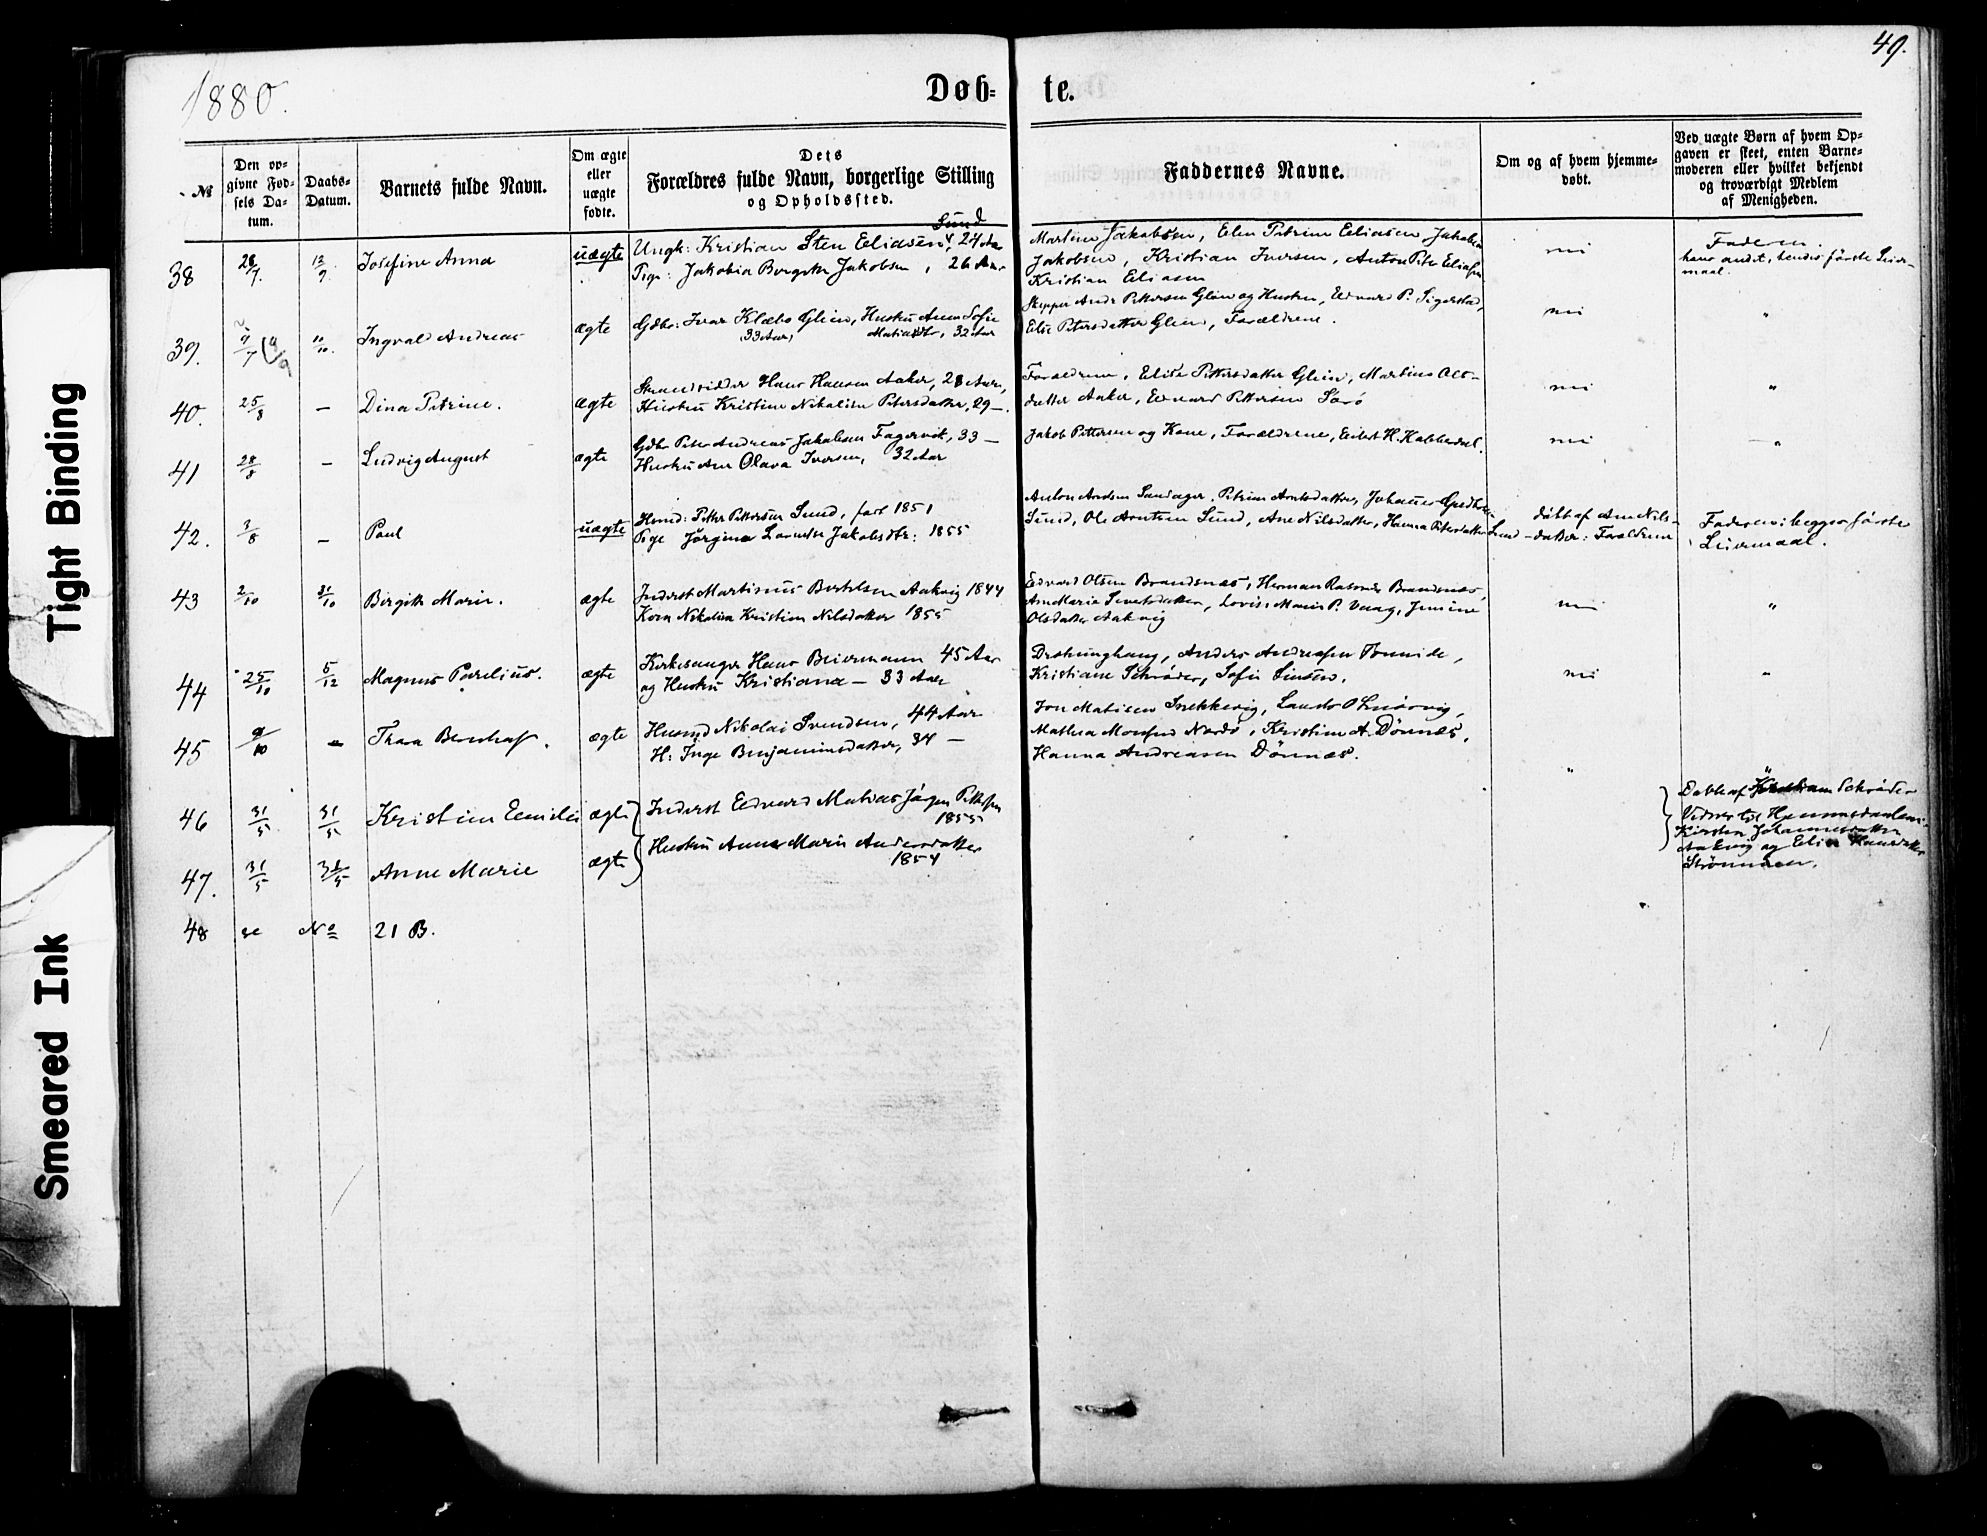 49.
1880.
Døb- te.
№
Den op-
givne Fød-
sels Da-
tum.
Daabs-
Datum.
Barnets fulde Navn.
Om ægte
eller
uægte
fødte.
Dets
Forældres fulde Navn, borgerlige Stilling
og Opholdssted.
Faddernes Navne.
Om og af hvem hjemme-
døbt.
Ved uægte Børn af hvem Op-
gaven er skeet, enten Barne-
moderen eller hvilket bekjendt
og troværdigt Medlem
af Menigheden.
38 28/7. 12/9 Josefine Anna uægte
Sund
Ungk: Kristian Sten Eliasen, 24 Aar
Pige: Jakobia Bergitte Jakobsen, 26 Aar
Martin Jakobsen, Elen Petrine Eliasen, Jakob
Jakobsen, Kristian Iversen, Anton Peter Eliasen
Kristian Eliasen
nei
Faderen.
hans andet, hendes første Leier-
maal.
39. 10/10. Ingvald Andreas ægte
Gdbr: Ivar Klæbo Glein, Hustru Anna Sofie
33 Aar, Matiasdtr, 32 Aar
Skipper Andr Pettersen Glein og Hustru, Edvard P. Sigerstad,
Elise Petersdatter Glein, Forældrene.
nei "
40. 25/8 — Dina Petrine. ægte
Strandsidder Hans Hansen Aaker, 28 Aar,
Hustru Kristine Nikoline Petersdatter, 29 —
Forældrene, Elise Pettersdatter Glein, Martine Ols-
datter Aaker, Edvard Pettersen
nei "
41 28/8 — Ludvig August ægte
Gdbr Peter Andreas Jakobsen Fagervik, 33 —
Hustru Ane Olava Iversen, 32 Aar
Jakob Pettersen og Kone, Forældrene, Eilert H.
nei "
42. 3/8 — Paul uægte
Petter Pettersen Sund, født 1851
Pige Jørgine Jakobsdtr: 1855
Anton Andersen Sandager, Petrine Arntsdatter, Johannes
Sund, Ole Arntsen Sund, Ane Nilsdatter, Hanna Petersdatter Sund
døbt af Ane Nils-
datter: Forældrene
Faderen begges første
Leiermaal.
43 2/10 31/10 Birgitte Marie. ægte
Inderst Martinus Bertelsen Aakvig 1844
Kone Nikoline Kristine Nilsdatter 1855
Edvard Olsen Brandsnæs, Herman Rasmus Brandsnæs,
Ane Marie, Lovise Marie P. Vaag, Jensine
Olsdatter Aakvig
nei "
44 25/10 5/12 Magnus Parelius. ægte
Kirkesanger Hans Beiermann 45 Aar
og Hustru Kristiana — 33 Aar
Anders Andreasen
Kristiane Schrøder, Sofie
nei "
45 9/10 — Thora ægte
Husmd Nikolai Svendsen, 44 Aar
H: Inge Benjaminsdatter, 34 —
Jon Matisen Snekkevig,
Mathea Nordø, Kristine A. Dønnes,
Hanna Andreasen Dønnæs.
" "
46 31/5 31/5 Kristine Emilie ægte
Inderst Edvard Matias Jørgen Pettersen
1855
47. 31/5 31/5 Anne Marie ægte
Hustru Anna Marie Andersdatter
1854
Døbt af Schrøder
Vidner til Hjemmedaaben:
Kirsten Johannesdatter
Aakvig og Elin Hansdatter
Strømmen.
48 se No 21 B.
Tight Binding
Smeared Ink